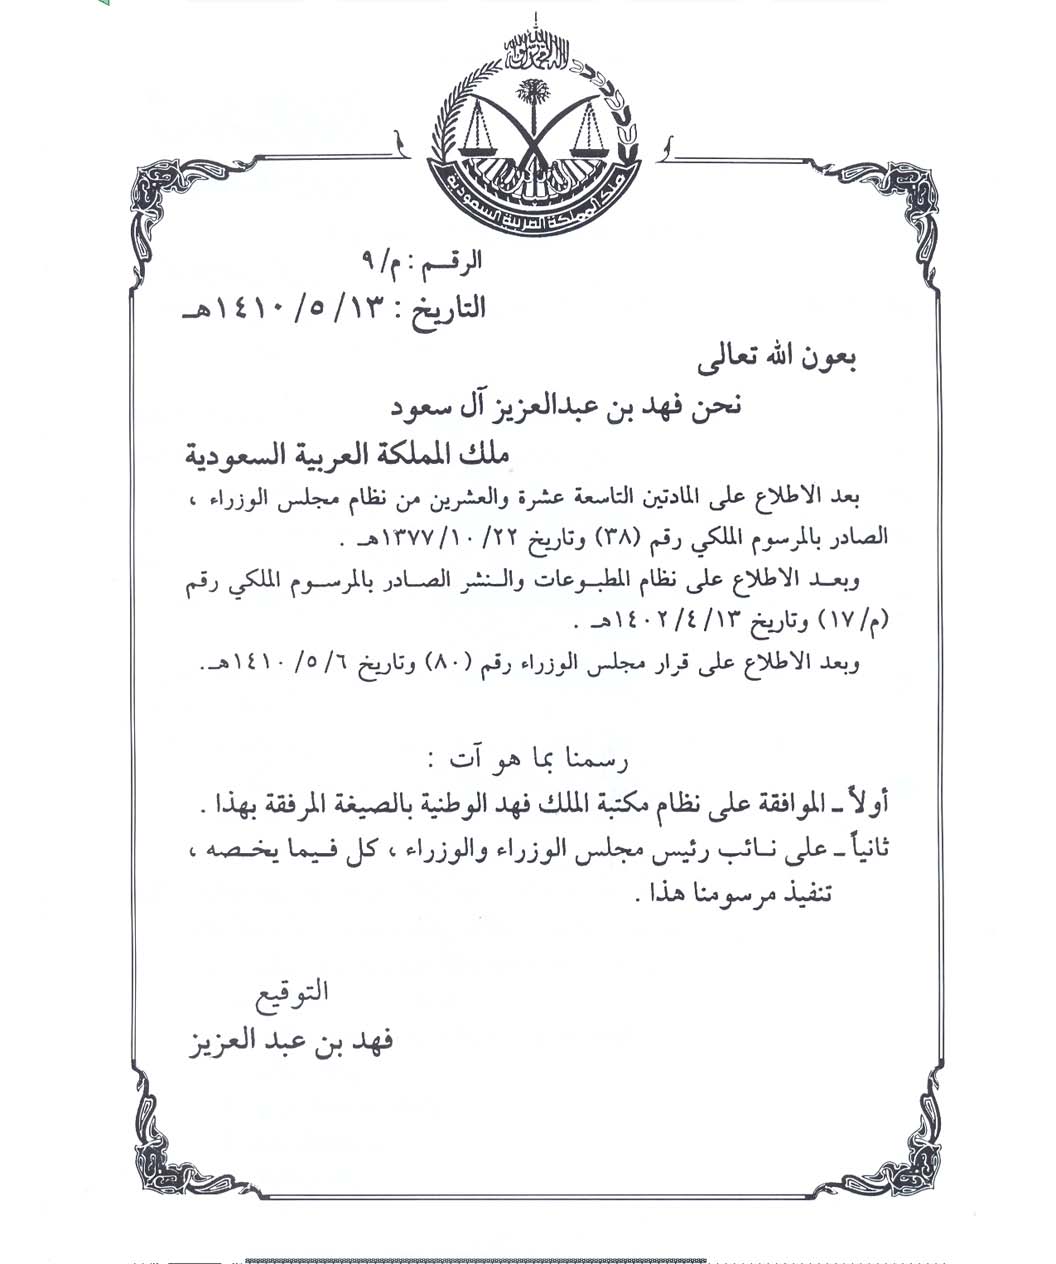 لا إله إلا الله محمد رسول الله
ملك المملكة العربية السعودية
الرقـم : م/٩
التاريخ : ١٣/ ٥/ ١٤١٠هـ
بعون الله تعالى
نحن فهد بن عبدالعزيز آل سعود
ملك المملكة العربية السعودية
بعد الاطلاع على المادتين التاسعة عشرة والعشرين من نظام مجلس الوزراء ،
الصادر بالمرسوم الملكي رقم (٣٨) وتاريخ ٢٢/ ١٠/ ١٣٧٧هـ .
وبعـد الاطلاع على نظام المطبـوعات والـنشر الصـادر بالمرسـوم الملكي رقم
(م/ ١٧) وتاريخ ١٣/ ٤/ ١٤٠٢هـ .
وبعد الاطلاع على قرار مجلس الوزراء رقم (٨٠) وتاريخ ٦/ ٥/ ١٤١٠هـ.
رسمنا بما هو آت :
أولاً ـ الموافقة على نظام مكتبة الملك فهد الوطنية بالصيغة المرفقة بهذا .
ثانياً ـ على نـائب رئيس مجلس الوزراء والوزراء ، كل فيما يخـصه ،
تنفيذ مرسومنا هذا .
التوقيع
فهد بن عبد العزيز